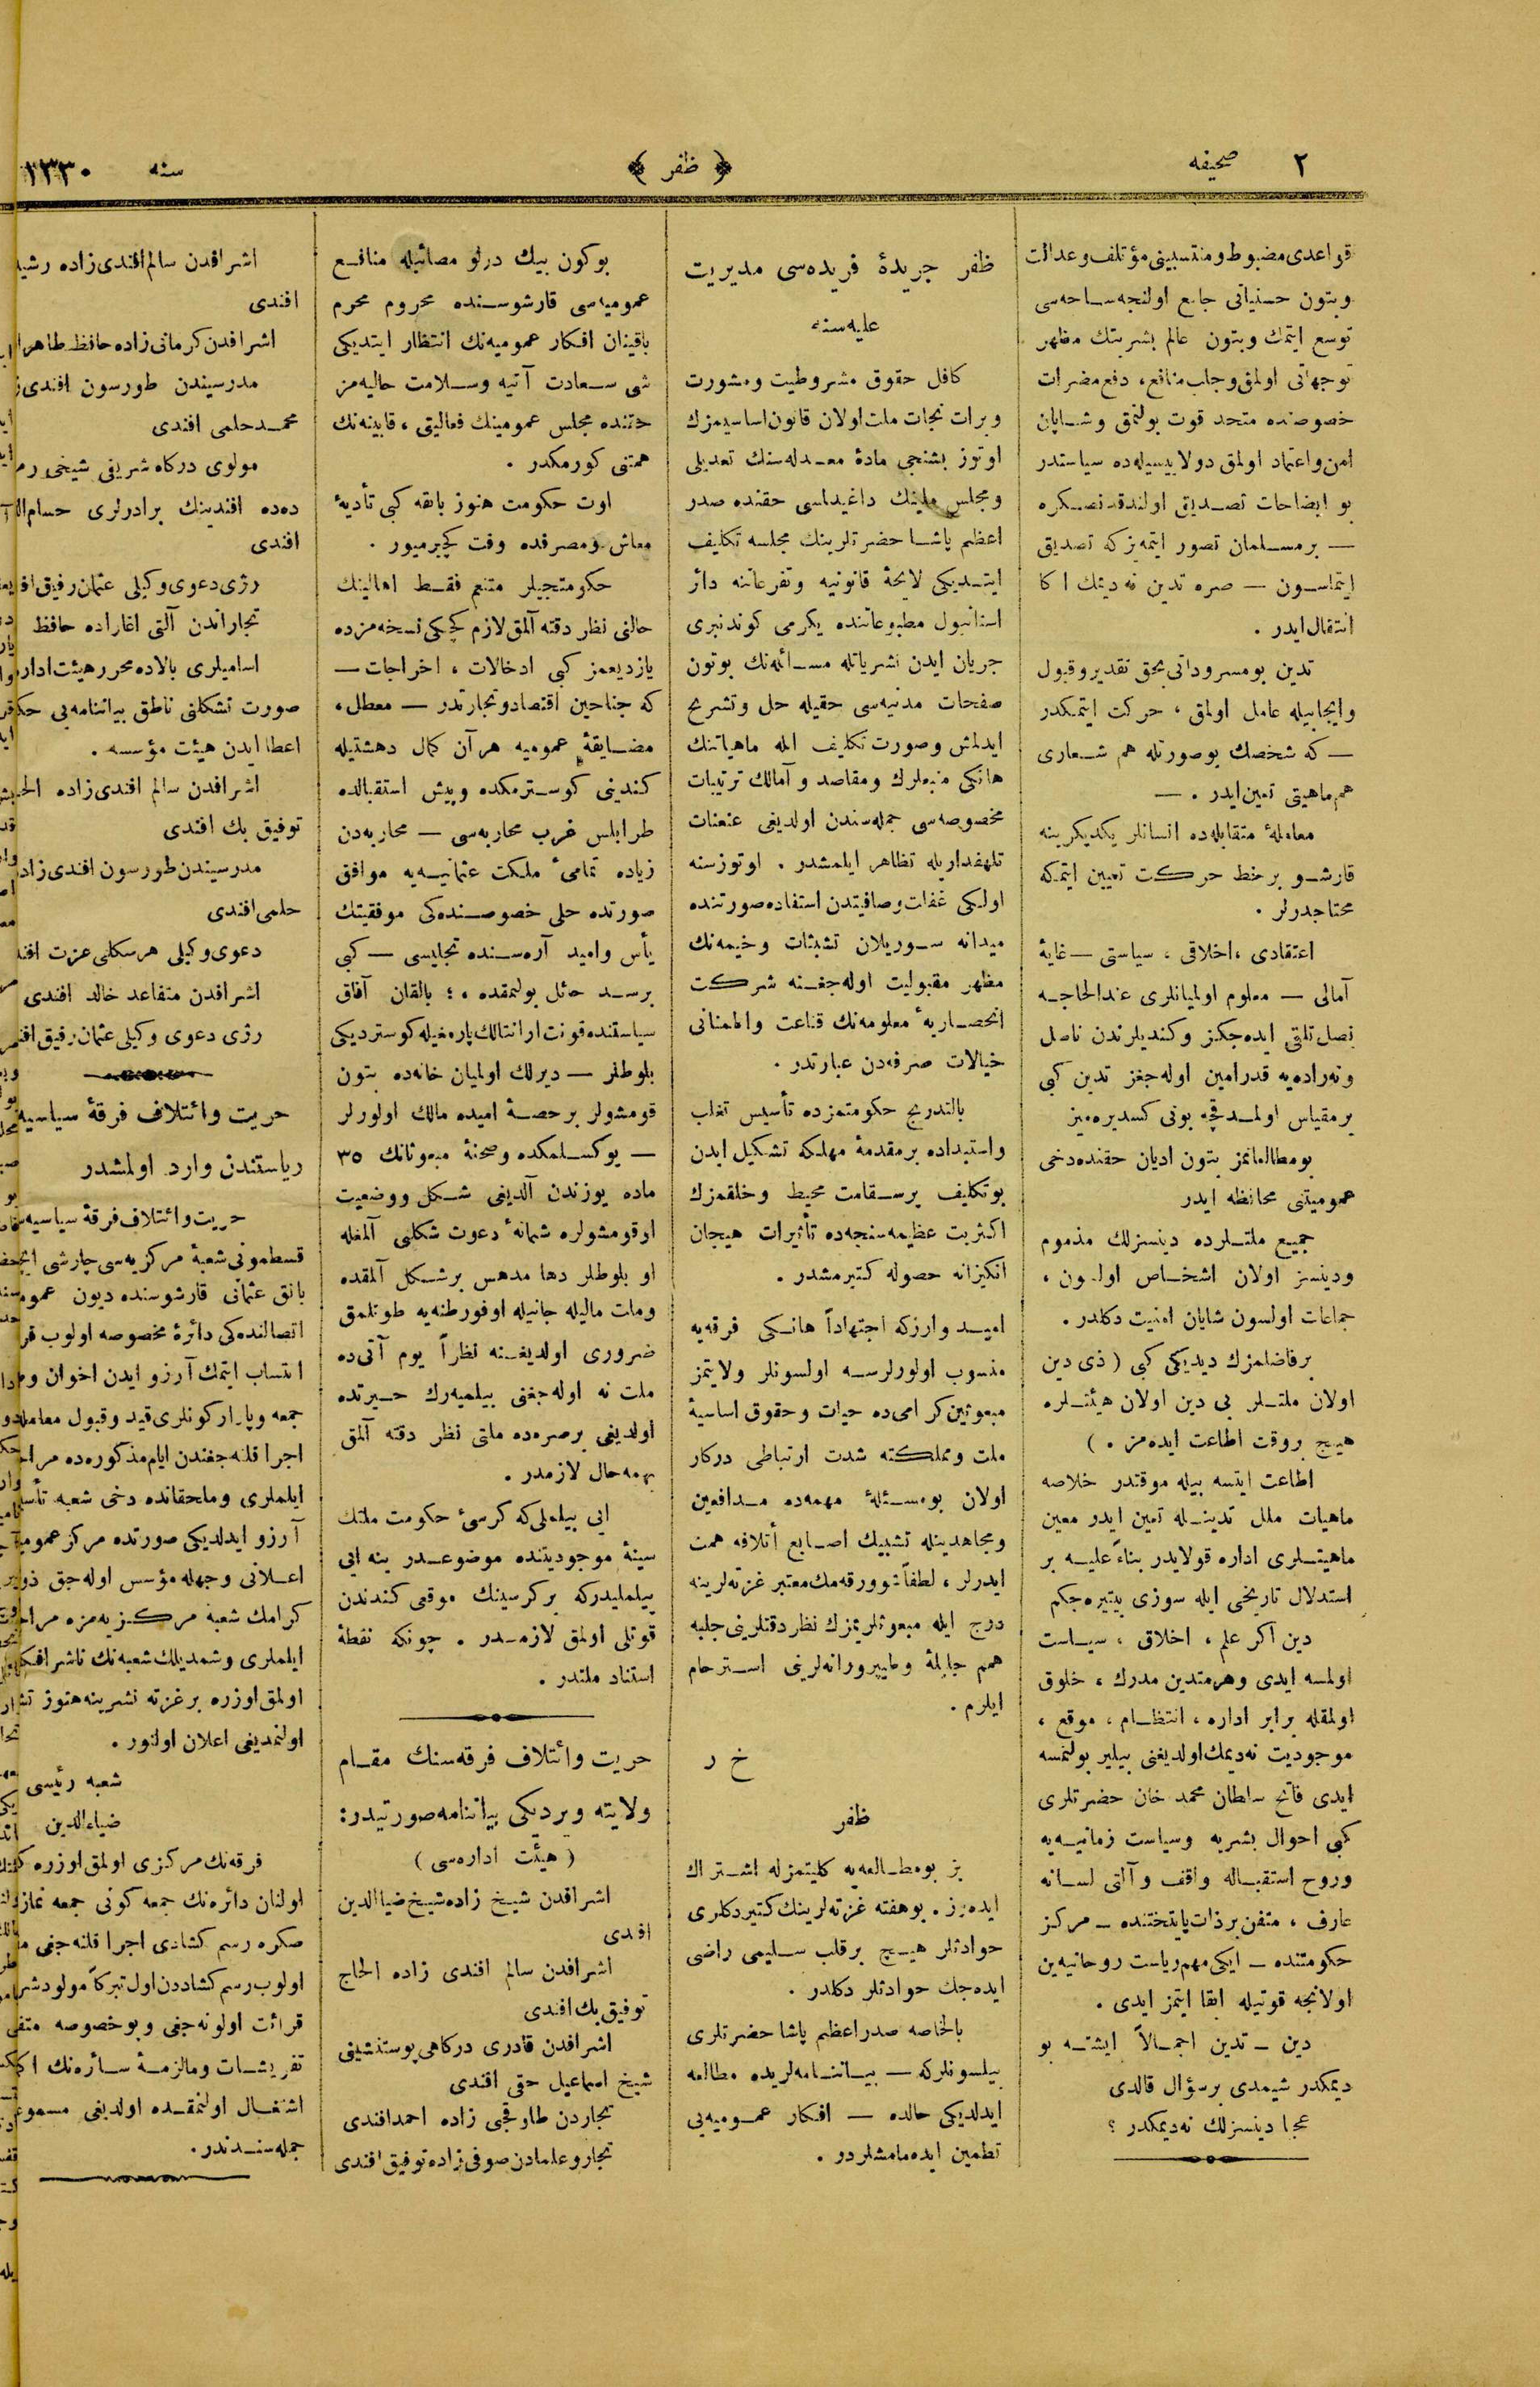 ٢ صحيفه
﴿ ظفر ﴾
سنه ١٣٣٠
قواعدى مضبوط ومنتسبينى مؤتلف وعدالت
وبتون حسنياتى جامع اولنجه ساحه‌سى
توسع ايتمك وبتون عالم بشريتك مظهر
توجهاتى اولمق وجلب منافع، دفع مضرات
خصوصنده متحد قوت بولنمق وشايان
امن واعتماد اولمق دولاييسيله‌ده سياستدر
بو ايضاحات تصديق اولندقدنصكره
— برمسلمان تصور ايتمه‌يزكه تصديق
ايتماسون — صره تدين نه ديمك اكا
انتقال ايدر .
تدين بومسروداتى بحق تقدير وقبول
وايجابيله عامل اولمق ، حركت ايتمكدر
— كه شخصك بوصورتله هم شعارى
هم ماهيتى تعين ايدر . —
معاملهٔ متقابله‌ده انسانلر يكديكرينه
قارشو برخط حركت تعيين ايتمكه
محتاجدرلر .
اعتقادى ، اخلاقى ، سياستى — غايهٔ
آمالى — معلوم اولميانلرى عندالحاجه
نصل تلقى ايده‌جكز وكنديلرندن ناصل
ونه راده‌يه قدر امين اوله‌جغز تدين كبى
برمقياس اولمدقجه بونى كسديره‌ميز
بومطالعه‌نمز بتون اديان حقنده‌دخى
عموميتنى محافظه ايدر
جميع ملتلرده دينسزلك مذموم
ودينسز اولان اشخاص اولسون ،
جماعات اولسون شايان امنيت دكلدر .
برفاضلمزك ديديكى كبى ( ذى دين
اولان ملتلر بى دين اولان هيئتلره
هيچ بروقت اطاعت ايده‌مز . )
اطاعت ايتسه بيله موقتدر خلاصه
ماهيات ملل تدينله تعين ايدر معين
ماهيتلرى اداره قولايدر بناءً عليه بر
استدلال تاريخى ايله سوزى بيتيره‌جكم
دين اكر علم ، اخلاق ، سياست
اولمسه ايدى وهر متدين مدرك ، خلوق
اولمقله برابر اداره ، انتظام ، موقع ،
موجوديت نه‌ديمك اولديغنى بيلير بولنمسه
ايدى فاتح سلطان محمد خان حضرتلرى
كبى احوال بشريه وسياست زمانيه‌يه
وروح استقباله واقف وآلتى لسانه
عارف ، متفن برذات پايتختنده — مركز
حكومتنده — ايكى مهم رياست روحانيه‌ين
اولانجه قوتيله ابقا ايتمز ايدى .
دين — تدين اجمالاً ايشته بو
ديمكدر شيمدى برسؤال قالدى
عجبا دينسزلك نه‌ديمكدر ؟
ظفر جريدهٔ فريده‌سى مديريت
عليه‌سنه
كافل حقوق مشروطيت ومشورت
وبرات نجات ملت اولان قانون اساسيمزك
اوتوز بشنجى مادهٔ معدله‌سنك تعديلى
ومجلس ملينك داغيدلمسى حقنده صدر
اعظم پاشا حضرتلرينك مجلسه تكليف
ايتديكى لايحهٔ قانونيه وتفرعاتنه دائر
استانبول مطبوعاتنده يكرمى كوندنبرى
جريان ايدن نشرياتله مسائله‌نك بوتون
صفحات مدنيه‌سى حقيله حل وتشريح
ايدلمش وصورت تكليف ايله ماهياتنك
هانكى منبعلرك ومقاصد وآمالك ترتيبات
مخصوصه‌سى جمله‌سندن اولديغى عنعنات
تلهفداريله تظاهر ايلمشدر . اوتوزسنه
اولكى غفلت وصافيتدن استفاده صورتنده
ميدانه سوريلان تشبثات وخيمه‌نك
مظهر مقبوليت اوله‌جغنه شركت
انحصاريهٔ معلومه‌نك قناعت واطمئنانى
خيالات صرفه‌دن عبارتدر .
بالتدريج حكومتمزده تأسيس تغلب
واستبداده برمقدمهٔ مهلكه تشكيل ايدن
بوتكليف برسقامت محيط وخلقمزك
اكثريت عظيمه‌سنجه‌ده تأثيرات هيجان
انكيزانه حصوله كتيرمشدر .
اميد وارزكه اجتهاداً هانكى فرقه‌يه
منسوب اولورلرسه اولسونلر ولايتمز
مبعوثين كرامى‌ده حيات وحقوق اساسيهٔ
ملت ومملكته شدت ارتباطى دركار
اولان بومسئلهٔ مهمه‌ده مدافعين
ومجاهدينله تشبيك اصابع أتلافه همت
ايدرلر ، لطفاً شوورقه‌مك معتبر غزته‌لرينه
درج ايله مبعوثلريمزك نظر دقتلرينى جلبه
همم جليلهٔ وطنپرورانه‌لرينى استرحام
ايلرم .
خ ر
ظفر
بز بومطالعه‌يه كليتمزله اشتراك
ايده‌رز . بوهفته غزته‌لرينك كتيردكلرى
حوادثلر هيچ برقلب سليمى راضى
ايده‌جك حوادثلر دكلدر .
بالخاصه صدراعظم پاشا حضرتلرى
بيلسونلركه — بياننامه‌لريده مطالعه
ايدلديكى حالده — افكار عموميه‌يى
تطمين ايده‌مامشلردر .
بوكون بيك درلو مصائبله منافع
عموميه‌سى قارشوسنده محروم محرم
باقينان افكار عموميه‌نك انتظار ايتديكى
شى سعادت آتيه وسلامت حاليه‌مز
حقنده مجلس عمومينك فعاليتى ، قابينه‌نك
همتنى كورمكدر .
اوت حكومت هنوز بانقه كبى تأديهٔ
معاش ومصرفده وقت كچيرميور .
حكومتجيلر متنعم فقط اهالينك
حالنى نظر دقته آلمق لازم كچنكى نسخه‌مزده
يازديغمز كبى ادخالات ، اخراجات —
كه جناحين اقتصاد وتجارتدر — معطل ،
مضايقهٔ عموميه هرآن كمال دهشتيله
كندينى كوسترمكده وپيش استقبالده
طرابلس غرب محاربه‌سى — محاربه‌دن
زياده تمامئ ملكت عثمانيه‌يه موافق
صورتده حلى خصوصنده‌كى موفقيتك
يأس واميد آره‌سنده تجليسى — كبى
برسد حائل بولنمقده ، ؛ بالقان آفاق
سياستنده قونت ارانتالك پارمغيله كوستردیكى
بلوطلر — ديرلك اولميان خانه‌ده بتون
قومشولر برحصهٔ اميده مالك اولورلر
— يوكسلمكده وصحنهٔ مبعوثانك ٣٥
ماده يوزندن آلديغى شكل ووضعيت
اوقومشولره شمانهٔ دعوت شكلى آلمغله
او بلوطلر دها مدهش برشكل آلمقده
وملت ماليله جانيله اوفورطنه‌يه طوتلمق
ضرورى اولديغنه نظراً يوم آتى‌ده
ملت نه اوله‌جغنى بيلميه‌رك حيرتده
اولديغى برصره‌ده ملتى نظر دقته آلمق
بهمه‌حال لازمدر .
ايى بيلملى كه كرسئ حكومت ملتك
سينهٔ موجوديتنده موضوعدر ينه ايى
بيلمليدركه بركرسينك موقعى كندندن
قوتلى اولمق لازمدر . چونكه نقطهٔ
استناد ملتدر .
حريت وائتلاف فرقه‌سنك مقام
ولايته ويرديكى بياننامه صورتيدر :
( هيئت اداره‌سى )
اشرافدن شيخ زاده شيخ ضياالدين
افندى
اشرافدن سالم افندى زاده الحاج
توفيق بك افندى
اشرافدن قادرى دركاهى پوستنشينى
شيخ اسماعيل حقى افندى
تجاردن طاوقجى زاده احمد افندى
تجار وعلمادن صوفى زاده توفيق افندى
اشرافدن سالم افندى زاده رشيد
افندى
اشرافدن كرمانى زاده حافظ طاهر
مدرسيندن طورسون افندى ز
محمد حلمى افندى
مولوى دركاه شريفى شيخى رم
ده‌ده افندينك برادرلرى حسام ال
افندى
رژى دعوى وكيلى عثمان رفيق اف
تجاراندن آلتى اغازاده حافظ
اساميلرى بالاده محرر هيئت اداره
صورت تشكلنى ناطق بياننامه‌يى حك
اعطا ايدن هيئت مؤسسه .
اشرافدن سالم افندى زاده الح
توفيق بك افندى
مدرسيندن طورسون افندى زاد
حلمى افندى
دعوى وكيلى هرسكلى عزت افند
اشرافدن متقاعد خالد افندى
رژى دعوى وكيلى عثمان رفيق افند
حريت وائتلاف فرقهٔ سياسيه
رياستندن وارد اولمشدر
حريت وائتلاف فرقهٔ سياسيه
قسطمونى شعبهٔ مركزيه‌سى چارشى ايچ
بانق عثمانى قارشوسنده ديون عموم
اتصالنده‌كى دائرهٔ مخصوصه اولوب فر
انتساب ايتمك آرزو ايدن اخوان وط
جمعه وپازار كونلرى قيد وقبول معامله
اجرا قلنه‌جغندن ايام مذكوره‌ده مراج
ايلملرى وملحقاتده دخى شعبه تأس
آرزو ايدلديكى صورتده مركز عموم
اعلانى وجهله مؤسس اوله‌جق ذو
كرامك شعبهٔ مركزيه‌مزه مراج
ايلملرى وشمديلك شعبه‌نك ناشر افك
اولمق اوزره برغزته نشرينه هنوز تش
اولنمديغى اعلان اولنور .
شعبه رئيسى
ضياءالدين
فرقه‌نك مركزى اولمق اوزره ك
اولنان دائره‌نك جمعه كونى جمعه نماز
صكره رسم كشادى اجرا قلنه‌جغى م
اولوب رسم كشاددن اول تبركاً مولود شر
قرائت اولونه‌جغى وبوخصوصه متف
تفريشات ومالزمهٔ سائره‌نك اك
اشتغال اولنمقده اولديغى مسموع
جمله‌سندندر .